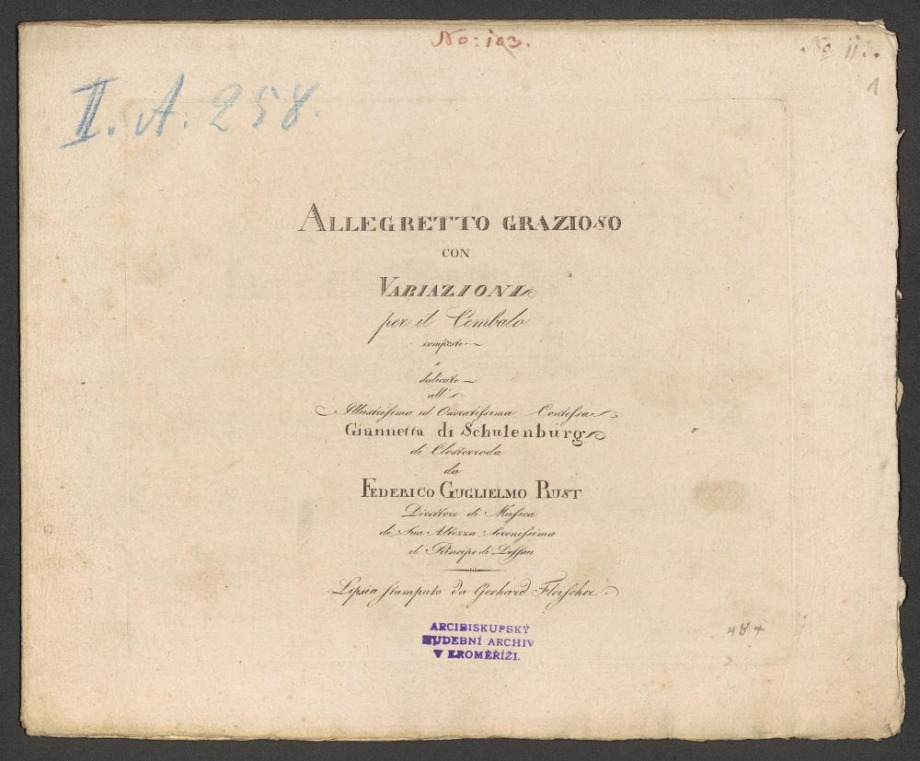 No: 103.
No 113.
1
II. A. 258.
ALLEGRETTO GRAZIOSO
CON
VARIAZIONI
per il Cembalo
composte
e
dedicate
all'
Illustrissima ed Onoratissima Contessa
Giannetta di Schulenburg
di Closterroda
da
FEDERICO GUGLIELMO RUST
Direttore di Musica
di Sua Altezza Serenissima
il Principe di Dessau
Lipsia stampato da Gerhard Fleischer.
484
ARCIBISKUPSKÝ
HUDEBNÍ ARCHIV
V KROMĚŘÍŽI.